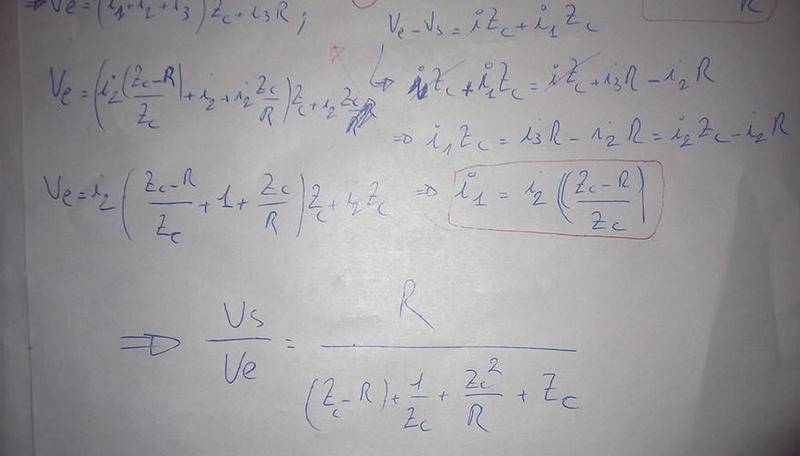 ⇒ Ve = (i1 + i2 + i3) Zc + i3R ;
Ve - Vs = iZc + i1Zc
R
Ve = (i2(Zc-R)/Zc + i2 + i2 Zc/R) Zc + i2 Zc/R R
⇒ iZc + i1Zc = iZc + i3R - i2R
⇒ i1Zc = i3R - i2R = i2Zc - i2R
Ve = i2 ( (Zc-R)/Zc + 1 + Zc/R ) Zc + i2Zc ⇒ i1 = i2 ( (Zc-R)/Zc )
⇒ Vs/Ve = R / ( (Zc-R) + 1/Zc + Zc²/R + Zc )